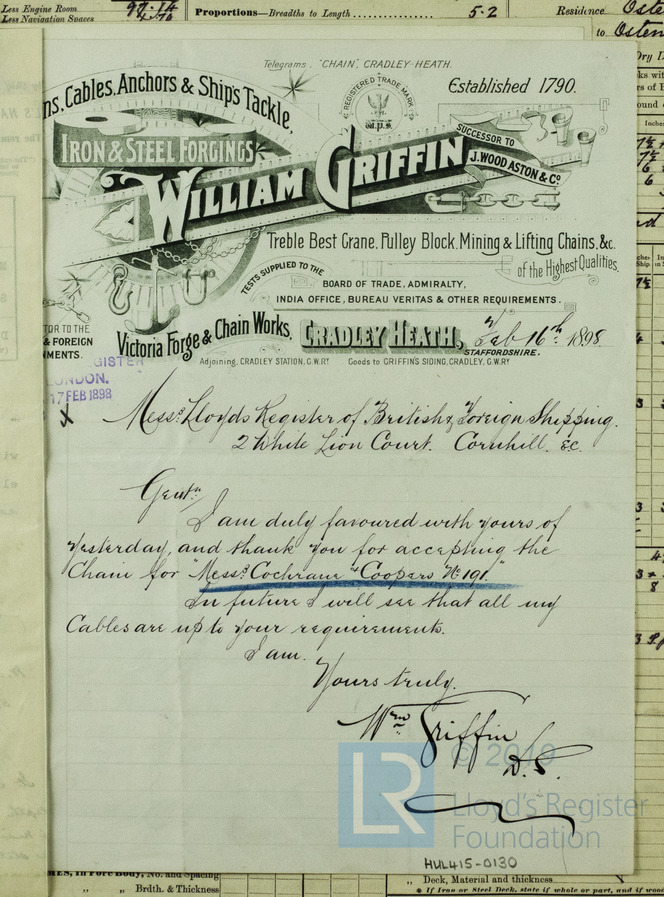 Less Engine Room
Less Navigation Spaces
97.14
4.76
Proportions—Breadths to Length
5.2
Residence Osten
to Osten
Telegrams, "CHAIN", CRADLEY-HEATH.
ns, Cables, Anchors & Ship's Tackle,
REGISTERED TRADE MARK
Established 1790.
IRON & STEEL FORGINGS
WILLIAM GRIFFIN
SUCCESSOR TO
J. WOOD ASTON & Co
Treble Best Crane, Pulley Block, Mining & Lifting Chains, &c.
of the Highest Qualities.
TESTS SUPPLIED TO THE
BOARD OF TRADE, ADMIRALTY,
INDIA OFFICE, BUREAU VERITAS & OTHER REQUIREMENTS.
TOR TO THE
& FOREIGN
NMENTS.
Victoria Forge & Chain Works,
CRADLEY HEATH,
STAFFORDSHIRE.
Feb 16th 1898
Adjoining, CRADLEY STATION, G.W.RY
Goods to GRIFFIN'S SIDING, CRADLEY, G.W.RY
GISTER
LONDON.
17 FEB 1898
Messrs Lloyds Register of British & Foreign Shipping.
2 White Lion Court. Cornhill. EC.
Gentn
I am duly favoured with yours of
yesterday, and thank you for accepting the
Chain for "Messrs Cochrane & Coopers No 191."
In future I will see that all my
Cables are up to your requirements.
I am.
Yours truly.
Wm Griffin
D.S.
© 2019
LR
Lloyd's Register
Foundation
HUL415-0130
MES, in Fore Body, No. and Spacing
„ „ Brdth. & Thickness
„ Deck, Material and thickness
* If Iron or Steel Deck, state if whole or part, and if wood